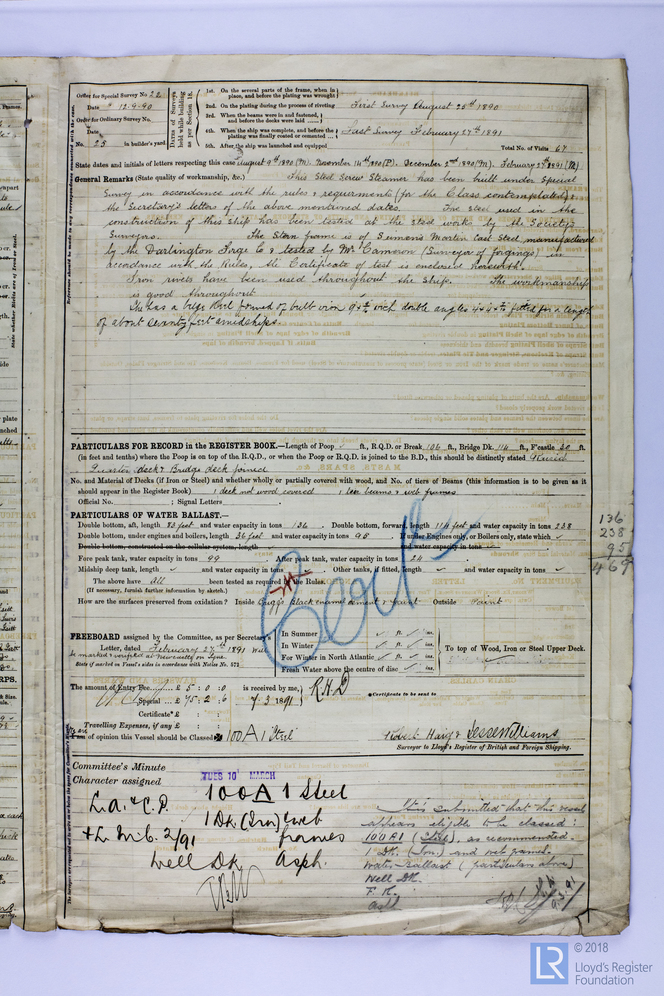 Order for Special Survey No 22
Date " 12.9.90
Order for Ordinary Survey No.
Date
No. 25 in builder's yard.
Dates of Surveys held while building as per Section 18.
1st. On the several parts of the frame, when in place, and before the plating was wrought
2nd. On the plating during the process of riveting First Survey August 25th 1890
3rd. When the beams were in and fastened, and before the decks were laid
4th. When the ship was complete, and before the plating was finally coated or cemented Last Survey February 27th 1891
5th. After the ship was launched and equipped Total No. of Visits 67
State dates and initials of letters respecting this case August 9th 1890 (M). November 14th 1890 (P). December 2nd 1890 (M). February 27th 1891 (M)
General Remarks (State quality of workmanship, &c.) This Steel Screw Steamer has been built under Special
Survey in accordance with the rules & requirments (for the Class contemplated) &
the Secretary's letters of the above mentioned dates. The Steel used in the
construction of this ship has been tested at the steel works by the Society's
Surveyors. The Stern frame is of Siemens Martin Cast Steel manufactured
by the Darlington Forge Co & tested by Mr Cameron (Surveyor of forgings) in
accordance with the Rules, the Certificate of test is enclosed herewith.
Iron rivets have been used throughout the Ship. The workmanship
is good throughout.
She has a bilge keel formed of bulb iron double angles fitted for a length
of about seventy feet amidships.
PARTICULARS FOR RECORD in the REGISTER BOOK.—Length of Poop ft., R.Q.D. or Break 106 ft., Bridge Dk. 114 ft., F'castle 30 ft.
(in feet and tenths) where the Poop is on top of the R.Q.D., or when the Poop or R.Q.D. is joined to the B.D., this should be distinctly stated Raised
Quarter deck & Bridge deck joined
No. and Material of Decks (if Iron or Steel) and whether wholly or partially covered with wood, and No. of tiers of Beams (this information is to be given as it
should appear in the Register Book) 1 deck not wood covered 1 tier beams & web frames
Official No. ; Signal Letters
PARTICULARS OF WATER BALLAST.—
Double bottom, aft, length 80 feet and water capacity in tons 136. Double bottom, forward, length 114 feet and water capacity in tons 238
Double bottom, under engines and boilers, length 36 feet and water capacity in tons 95 If under Engines only, or Boilers only, state which
Double bottom, constructed on the cellular system, length and water capacity in tons
Fore peak tank, water capacity in tons 99 After peak tank, water capacity in tons 24
Midship deep tank, length and water capacity in tons Other tanks, if fitted, length and water capacity in tons
The above have all been tested as required by the Rules.
(If necessary, furnish further information by sketch.)
136
238
95
469
How are the surfaces preserved from oxidation? Inside black enamel cement & paint Outside Paint
FREEBOARD assigned by the Committee, as per Secretary's
Letter, dated February 27th 1891 Will
be marked & verified at Newcastle on Tyne
State if marked on Vessel's sides in accordance with Notice No. 571
In Summer ft. ins.
In Winter ft. ins.
For Winter in North Atlantic ft. ins.
Fresh Water above the centre of disc ft. ins.
To top of Wood, Iron or Steel Upper Deck.
The amount of Entry Fee £ 5 : 0 : 0 is received by me,
Special £ 75 : 2 : 6 7.3.1891
Certificate* £ : :
Travelling Expenses, if any £ : :
*Certificate to be sent to
am of opinion this Vessel should be Classed 100A1 Steel
Robert Haig & Jesse Williams
Surveyor to Lloyd's Register of British and Foreign Shipping.
Committee's Minute TUES 10 MARCH
Character assigned 100A1 Steel
L.A. & C.P. 1 Dk (Iron) & web
+ L.M.C. 2/91 frames
Well Dk Asph.
It is submitted that this vessel
appears eligible to be classed:
100A1 (Steel), as recommended.
1 Dk. (Iron.) and web frames.
Water Ballast (particulars above)
Well Dk.
F.K.
Asph
9.3.91
LR
© 2018
Lloyd's Register
Foundation